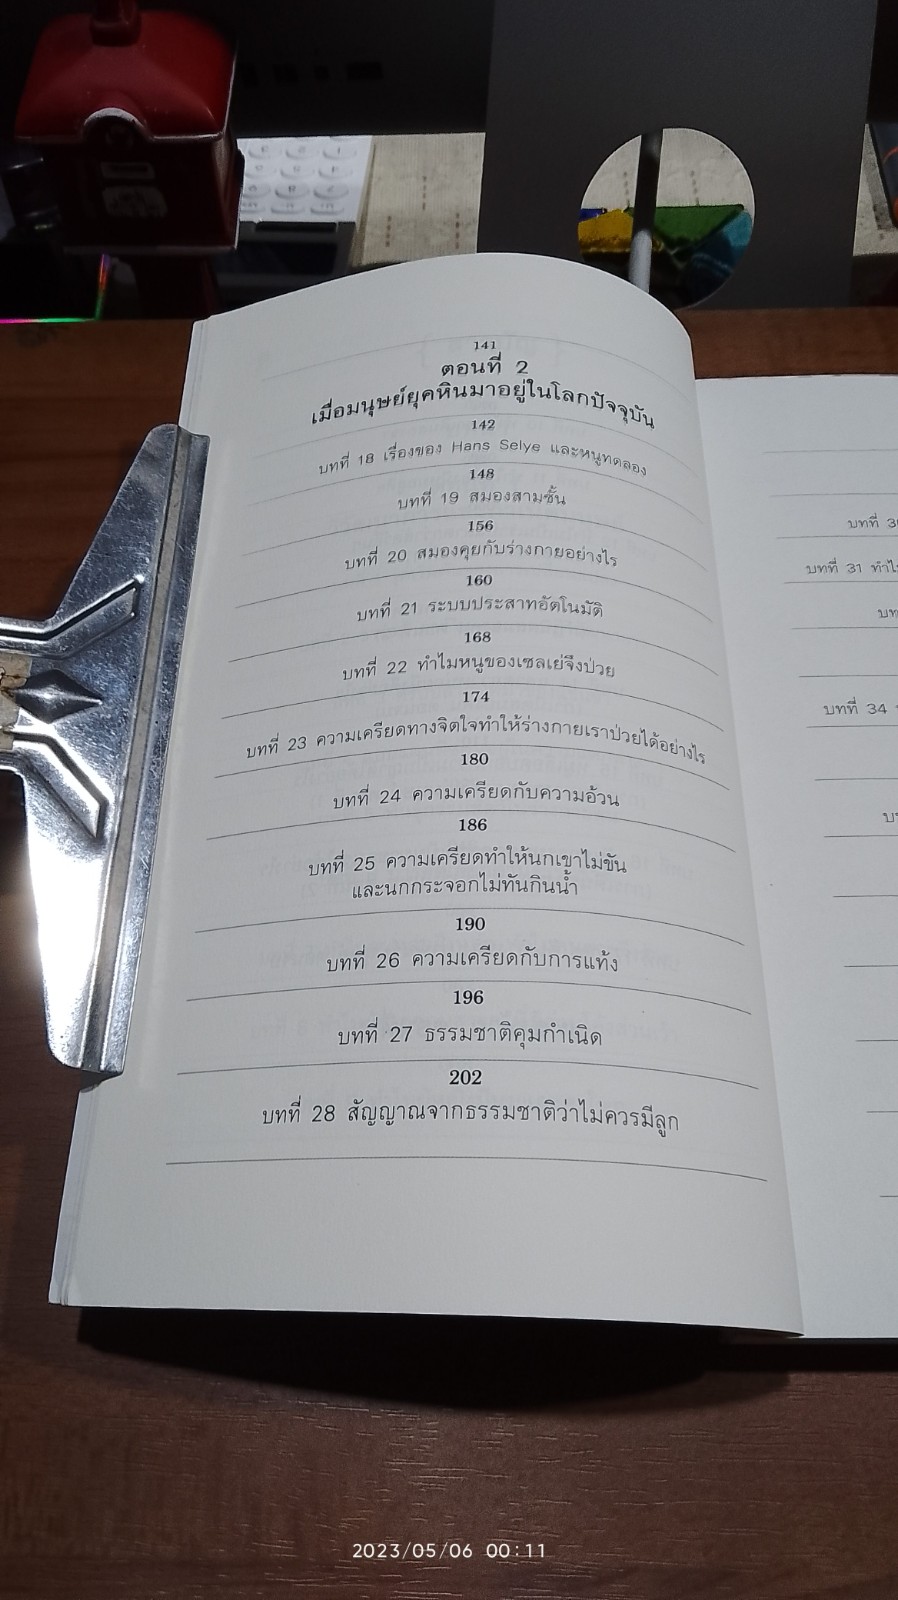 141
ตอนที่ 2
เมื่อมนุษย์ยุคหินมาอยู่ในโลกปัจจุบัน
142
บทที่ 18 เรื่องของ Hans Selye และหนูทดลอง
148
บทที่ 19 สมองสามชั้น
156
บทที่ 20 สมองคุยกับร่างกายอย่างไร
160
บทที่ 21 ระบบประสาทอัตโนมัติ
168
บทที่ 22 ทำไมหนูของเซลเย่จึงป่วย
174
บทที่ 23 ความเครียดทางจิตใจทำให้ร่างกายเราป่วยได้อย่างไร
180
บทที่ 24 ความเครียดกับความอ้วน
186
บทที่ 25 ความเครียดทำให้นกเขาไม่ขัน
และนกกระจอกไม่ทันกินน้ำ
190
บทที่ 26 ความเครียดกับการแท้ง
196
บทที่ 27 ธรรมชาติคุมกำเนิด
202
บทที่ 28 สัญญาณจากธรรมชาติว่าไม่ควรมีลูก
บทที่
บทที่ 31
บทที่ 34
2023/05/06 00:11